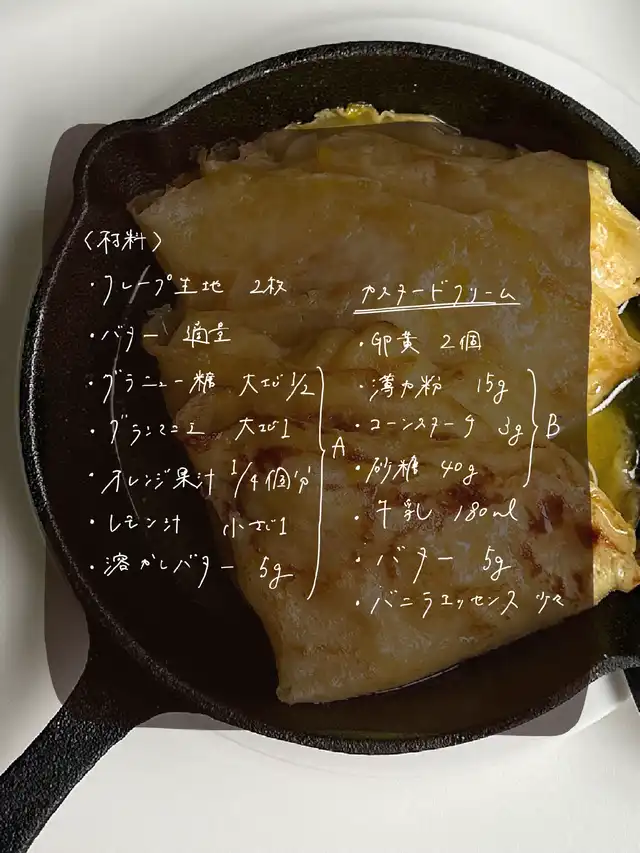 〈材料〉
・クレープ生地 2枚
・バター 適量
・グラニュー糖 大さじ1/2
・グランマニエ 大さじ1
・オレンジ果汁 1/4個分
・レモン汁 小さじ1
・溶かしバター 5g
A
カスタードクリーム
・卵黄 2個
・薄力粉 15g
・コーンスターチ 3g
・砂糖 40g
B
・牛乳 180ml
・バター 5g
・バニラエッセンス 少々